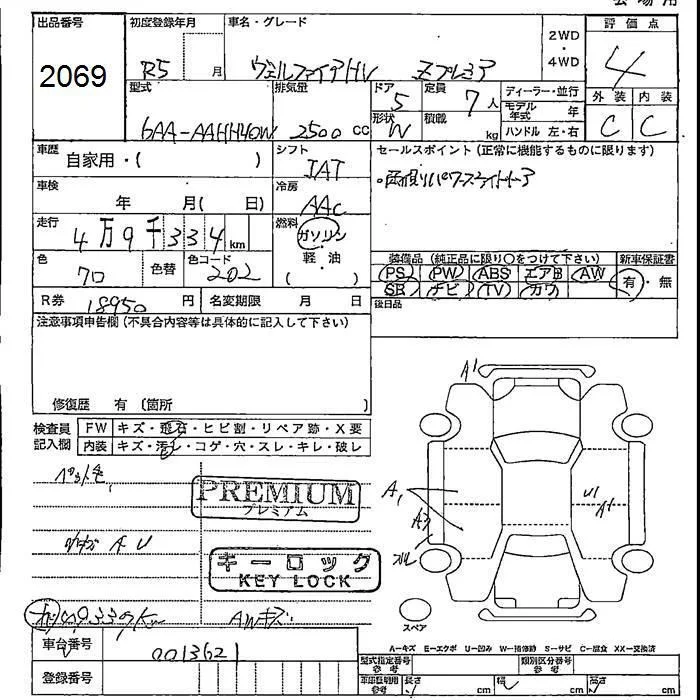 出品番号 初度登録年月 車名・グレード 評価点
2069
R5 月 ヴェルファイアHV Zプレミア 2WD・4WD 4
型式 排気量 ドア 定員 ディーラー・並行 外装 内装
5 7人 モデル年式 年
6AA-AAHH40W 2500 cc 形状 W 積載 kg ハンドル 左・右 C C
車歴 自家用・( ) シフト JAT セールスポイント(正常に機能するものに限ります)
・両側パワースライドドア
車検 年 月( 日) 冷房 AAC
走行 4万9千334km 燃料 ガソリン・軽・油 ( )
装備品(純正品に限り○をつけて下さい) 新車保証書
色 70 色替 色コード 202
PS PW ABS エアB AW 有・無
SR ナビ TV カワ
R券 18950円 名変期限 月 日 後日品
注意事項申告欄(不具合内容等は具体的に記入して下さい)
修復歴 有 〔箇所 〕
検査員記入欄 FW キズ・飛石・ヒビ割・リペア跡・X要
内装 キズ・汚レ・コゲ・穴・スレ・キレ・破レ
A1
PREMIUM
プレミアム
A1
U1
A1
A3
キーロック
KEY LOCK
AWキズ
スペア
車台番号 0013621
登録番号
A-キズ E-エクボ U-凹み W-補修跡 S-サビ C-腐食 XX-交換済
型式指定番号参考 類別区分番号参考
車庫証明用参考 長さ cm 幅 cm 高さ cm